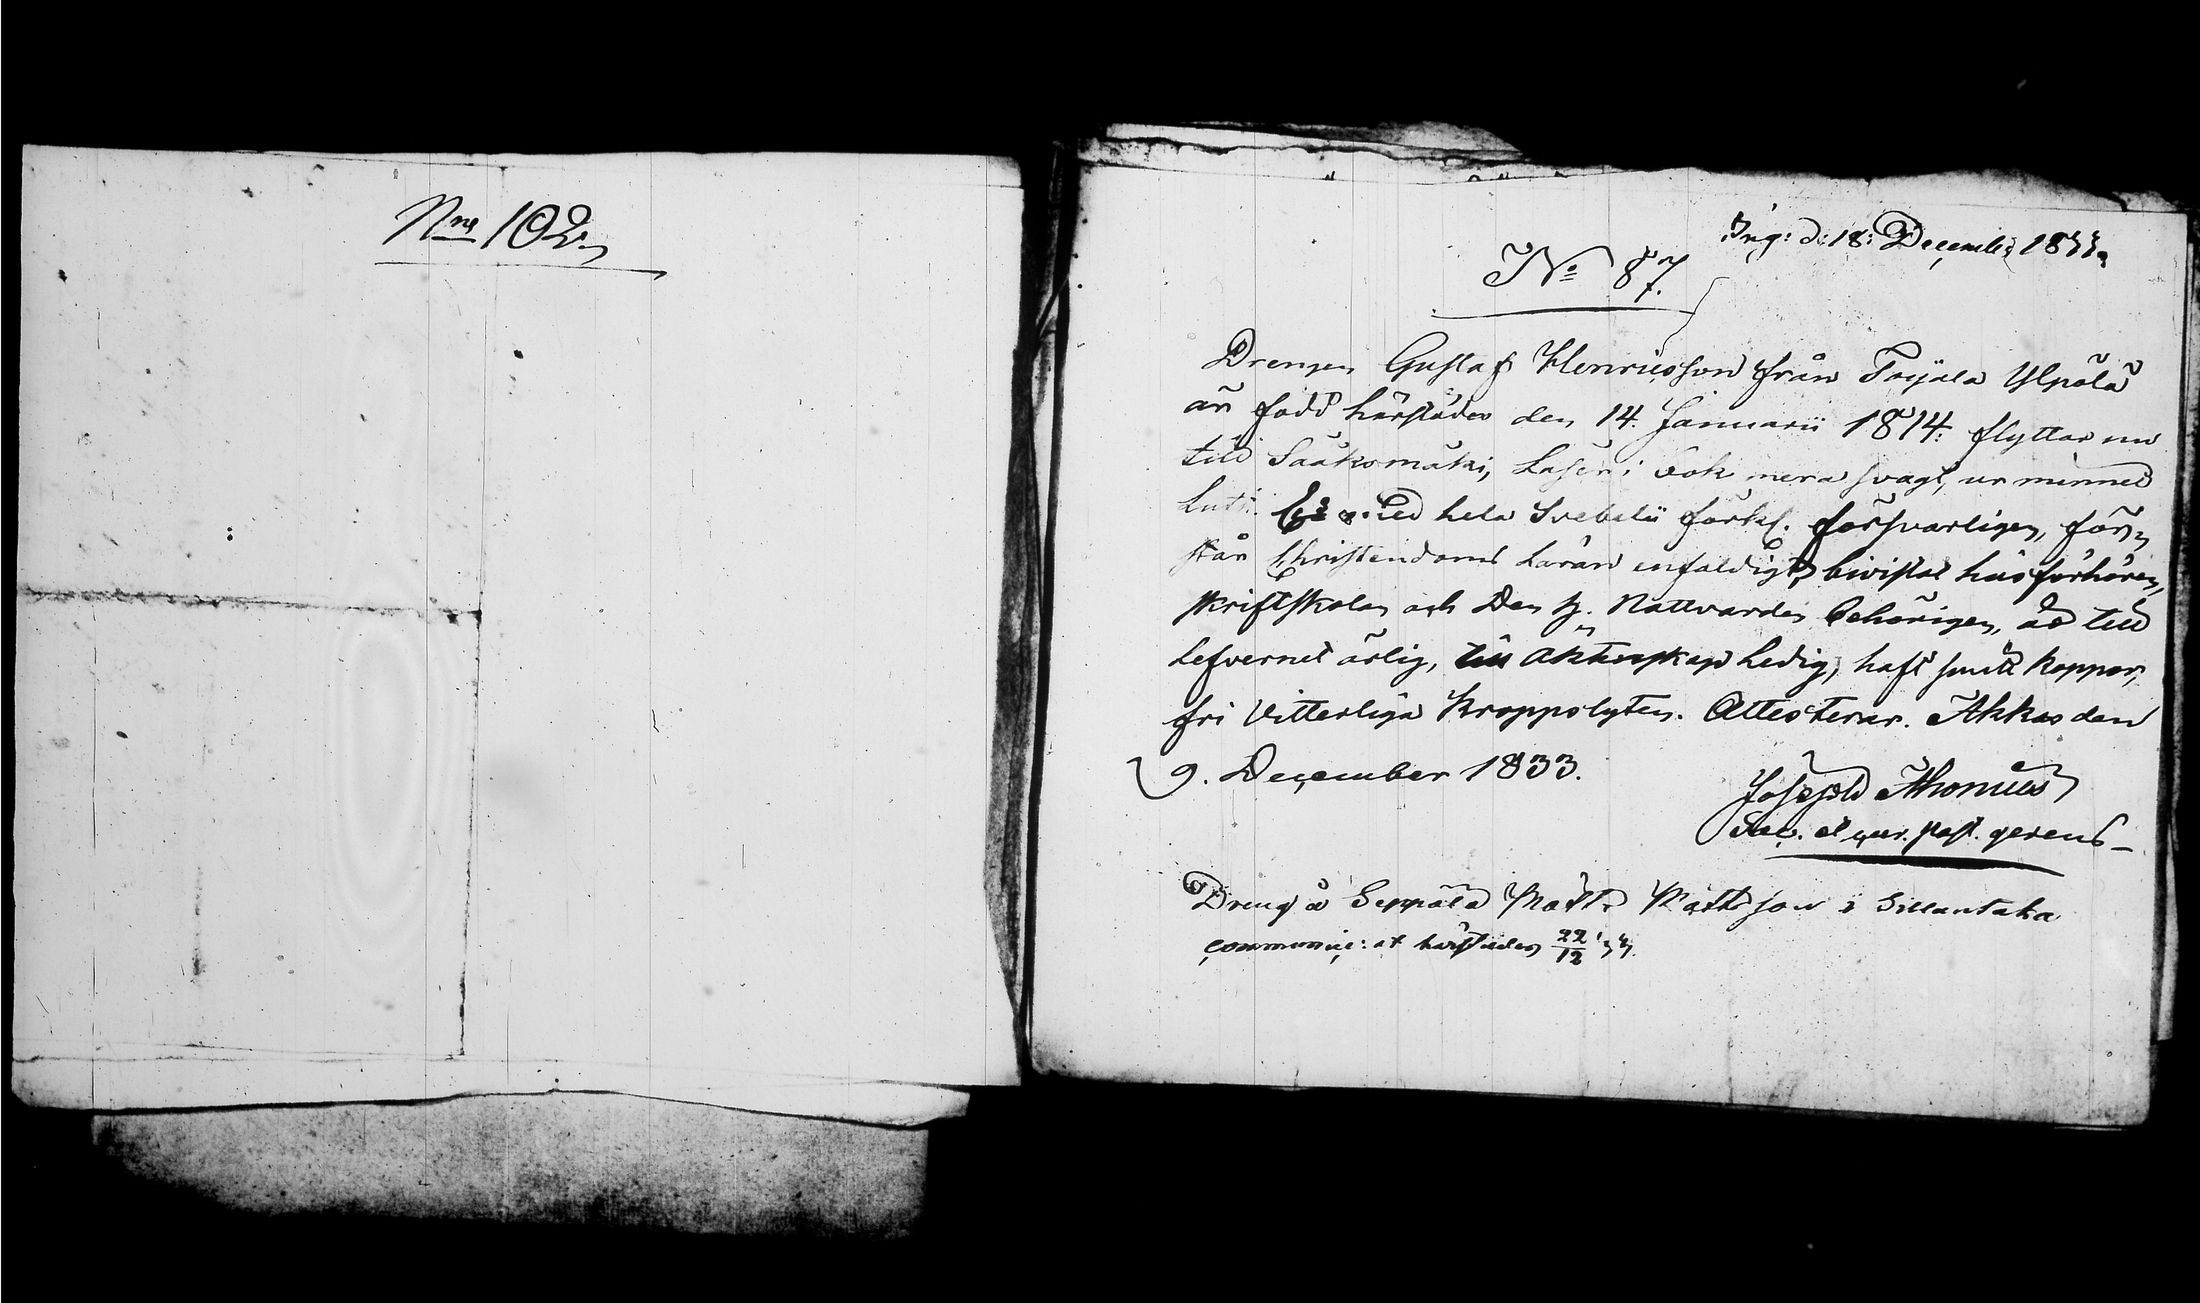 Nro 102
Ing: d: 18: December 1833.
No 87.
Drengen Gustaf Henricsson från Toijala Ylpölä
är född härstädes den 14. Januarii 1814: flyttar nu
till Sääksmäki, Läser i bok mera svagt, ur minnet
Luth. med hela Svebelii förkl. försvarligen, för-
står Christendoms Läran enfaldigt, bivistat husförhören,
skriftskolan och Den h. Nattvarden behörigen, är till
Lefvernet ärlig, till Äktenskap Ledig, haft små koppor,
fri Vitterliga Kroppslyten. Attesterar. Akkas den
9. December 1833.
Joseph Thonus
Sac. et cur. past. gerens
Dreng å Seppälä Matts Mattsson i Sillantaka
communic: at härstädes 22/12 33